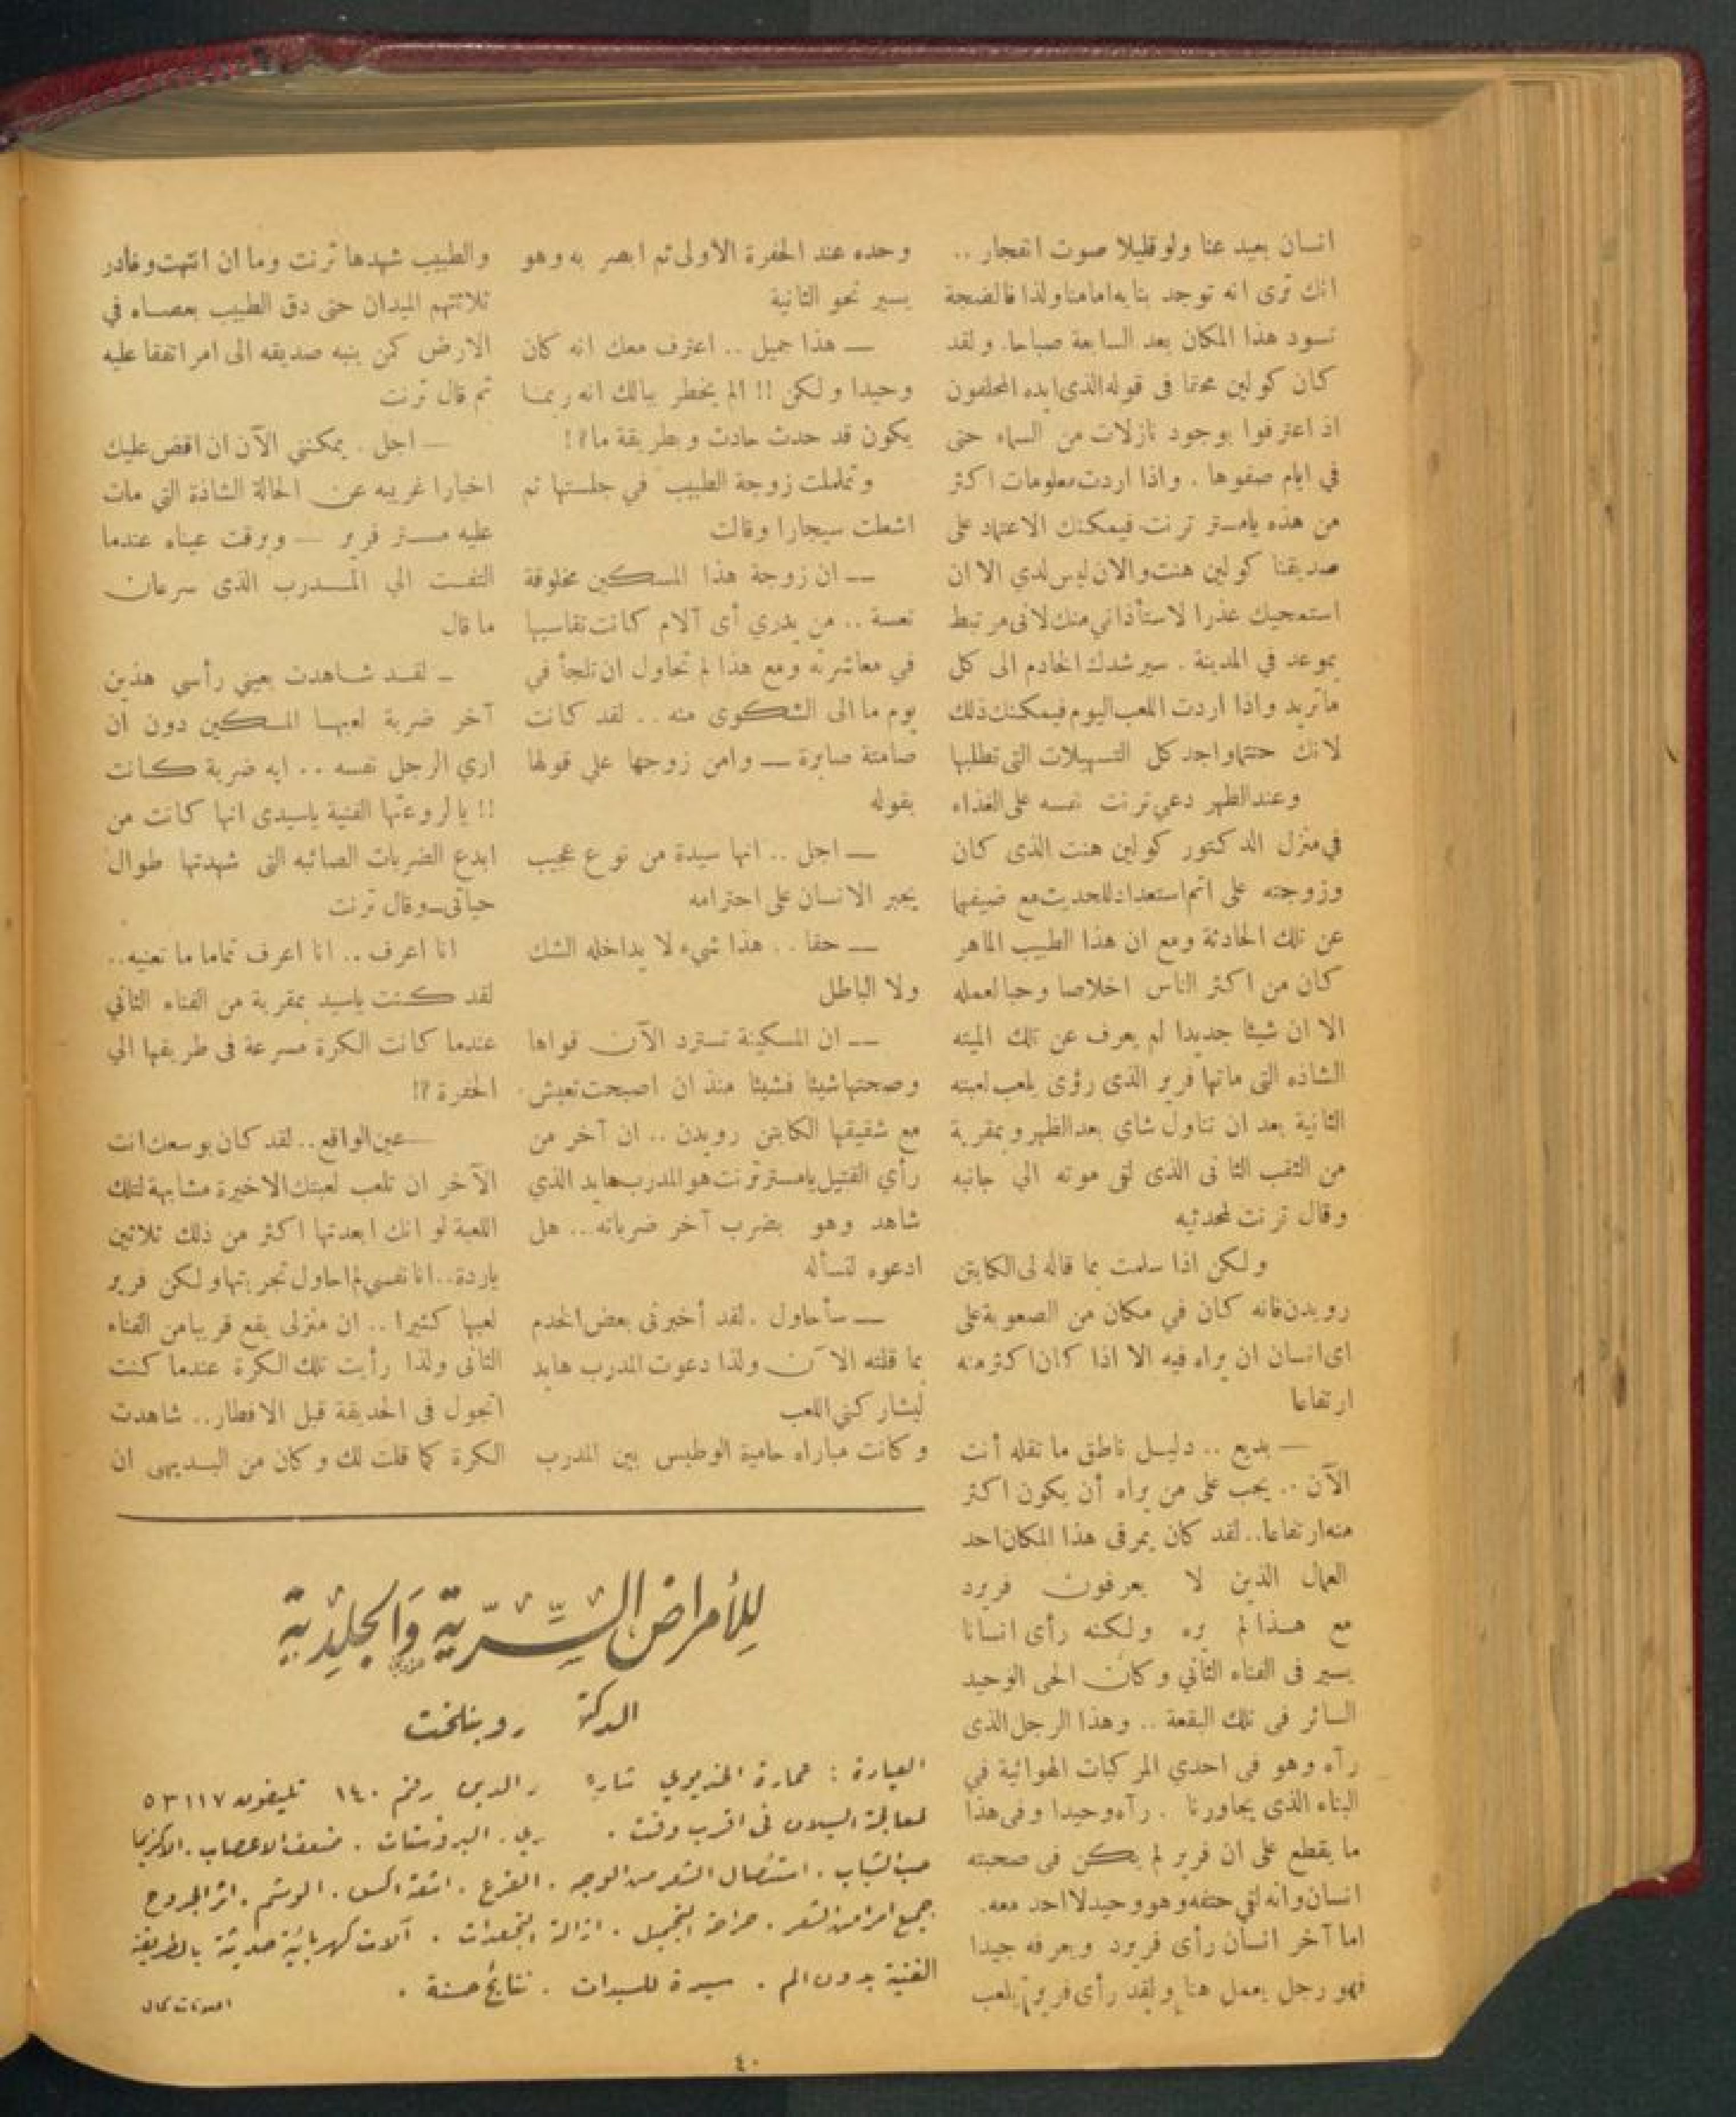 انسان بعيد عنا ولو قليلا صوت انفجار ..
انك ترى انه توجد بنايه امامنا ولذا فالضجة
تسود هذا المكان بعد السابعة صباحا. ولقد
كان كولين محقا فى قوله الذى ايده المحلفون
اذ اعترفوا بوجود نازلات من السماء حتى
في ايام صفوها . واذا اردت معلومات اكثر
من هذه يامستر ترنت فيمكنك الاعتماد على
صديقنا كولين هنت والان ليس لدي الا ان
استمحيك عذرا لاستأذاني منك لانى مرتبط
بموعد في المدينة . سيرشدك الخادم الى كل
ماتريد واذا اردت اللعب اليوم فيمكنك ذلك
لانك حتما واجد كل التسهيلات التى تطلبها
وعند الظهر دعي ترنت نفسه على الغذاء
في منزل الدكتور كولين هنت الذى كان
وزوجته على اتم استعداد للحديث مع ضيفهما
عن تلك الحادثة ومع ان هذا الطبيب الماهر
كان من اكثر الناس اخلاصا وحبا لعمله
الا ان شيئا جديدا لم يعرف عن تلك الميته
الشاذه التى ماتها فرير الذى رؤى يلعب لعبته
الثانية بعد ان تناول شاي بعد الظهر وبمقربة
من الثقب الثا نى الذى لقى موته الي جانبه
وقال ترنت لمحدثيه
ولكن اذا سلمت بما قاله لى الكابتن
رويدن فانه كان في مكان من الصعوبة على
اى انسان ان يراه فيه الا اذا كان اكثر منه
ارتفاعا
— بديع .. دليل ناطق ما تقله أنت
الآن .. يجب على من يراه أن يكون اكثر
منه ارتفاعا.. لقد كان يمر فى هذا المكان احد
العمال الذين لا يعرفون فريرد
مع هذا لم يره ولكنه رأى انسانا
يسير فى الفناء الثاني وكان الحى الوحيد
السائر فى تلك البقعة .. وهذا الرجل الذى
رآه وهو فى احدي المركبات الهوائية في
البناء الذى يجاورنا . رآه وحيدا وفى هذا
ما يقطع على ان فرير لم يكن فى صحبته
انسان وانه لقي حتفه وهو وحيد لا احد معه.
اما آخر انسان رأى فريرد ويعرفه جيدا
فهو رجل يعمل هنا ولقد رأى فرير يلعب
وحده عند الحفرة الاولى ثم ابصر به وهو
يسير نحو الثانية
— هذا جميل .. اعترف معك انه كان
وحيدا ولكن !! الم يخطر ببالك انه ربما
يكون قد حدث حادث وبطريقة ما؟!
وتململت زوجة الطبيب في جلستها ثم
اشعلت سيجارا وقالت
— ان زوجة هذا المسكين مخلوقة
تعسة .. من يدري أى آلام كانت تقاسيها
في معاشرته ومع هذا لم تحاول ان تلجأ في
يوم ما الى الشكوى منه .. لقد كانت
صامتة صابرة — وامن زوجها علي قولها
بقوله
— اجل .. انها سيدة من نوع عجيب
يجبر الانسان على احترامه
— حقا .. هذا شيء لا يداخله الشك
ولا الباطل
— ان المسكينة تسترد الآن قواها
وصحتها شيئا فشيئا منذ ان اصبحت تعيش
مع شقيقها الكابتن رويدن .. ان آخر من
رأي القتيل يامستر ترنت هو المدرب هايد الذي
شاهد وهو يضرب آخر ضرباته... هل
ادعوه لتسأله
— سأحاول .لقد أخبرنى بعض الخدم
بما قلته الآن ولذا دعوت المدرب هايد
ليشاركني اللعب
وكانت مباراه حامية الوطيس بين المدرب
والطبيب شهدها ترنت وما ان انتهت وغادر
ثلاثتهم الميدان حتى دق الطبيب بعصاه في
الارض كمن ينبه صديقه الى امر اتفقا عليه
ثم قال ترنت
— اجل . يمكنني الآن ان اقص عليك
اخبارا غريبه عن الحالة الشاذة التي مات
عليه مستر فرير — وبرقت عيناه عندما
التفت الي المدرب الذى سرعان
ما قال
— لقد شاهدت بعيني رأسي هذين
آخر ضربة لعبها المسكين دون ان
اري الرجل نفسه .. ايه ضربة كانت
!! يالروعتها الفنية ياسيدى انها كانت من
ابدع الضربات الصائبه التى شهدتها طوال
حياتى — وقال ترنت
انا اعرف .. انا اعرف تماما ما تعنيه..
لقد كنت ياسيد بمقربة من الفناء الثاني
عندما كانت الكرة مسرعة فى طريقها الي
الحفرة ؟!
— عين الواقع .. لقد كان بوسعك انت
الآخر ان تلعب لعبتك الاخيرة مشابهة لتلك
اللعبة لو انك ابعدتها اكثر من ذلك ثلاثين
ياردة.. انا نفسى لم احاول تجربتها ولكن فرير
لعبها كثيرا .. ان منزلى يقع قريبا من الفناء
الثانى ولذا رأيت تلك الكرة عندما كنت
اتجول فى الحديقة قبل الافطار .. شاهدت
الكرة كما قلت لك وكان من البديهى ان
للأمراض السرية والجلدية
الدكتور روبنلخت
العيادة : عمارة الخديوي شارع الدين رقم ١٤٠ تليفون ٥٣١١٧
لمعالجة السيلان فى اقرب وقت . البروستات . ضعف الاعصاب . الاكزيما
حب الشباب . استئصال الشعر من الوجه . القرع . اشعة اكس . الوشم . اثر الجروح
جميع امراض الشعر . جراحة التجميل . ازالة التجعدات . آلات كهربائية حديثة بالطريقة
الفنية بدون الم . سيدة للسيدات . نتائج حسنة .
اعلانات كمال
٤٠